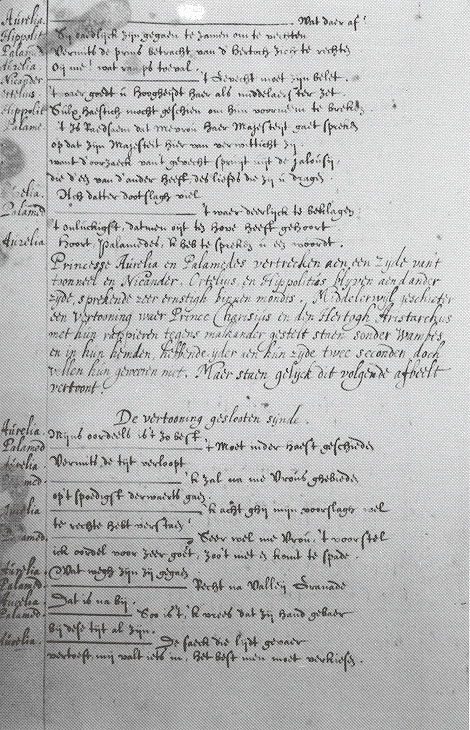 Aurelia. Wat daer af?
Hippolit Sij eendlijck zijn gegaen te zamen om te vechten
Palamed Vermits de prins betracht van d' Hertoch zich te rechten
Aurelia Oij me! wat ramps toeval.
Nicander 't Gevecht moet zijn belet.
Ortelius. 't waer goedt u Hoogheijdt Haer als middelaerster zet.
Hippolit Sulx haestich moest geschien om hun voornemen te breken
Palame 't Is Raedsaem dat Mevrou Haer Majesteijt gaet spreken
op dat zijn Majesteit hier van verwitticht zij
want d'oorzaeck van't gevecht spruijt uijt de jalousij,
die d'een van d'ander heeft, des liefds die zij u dragen
Aurelia. Och datter dootslagh viel
Palamed 't waer deerlijck te beklagen
't onluckigst, datmen oijt ten hove heeft gehoort
Aurelia Hoort, Palamedes, ik heb te spreken u een woordt.
Princesse Aurelia en Palamedes vertrecken aen een zyde van't
tonneel en Nicander. Ortelius, en Hippolitus blyven aen d'ander
zyde, sprekende zeer ernstigh binnen mondts. Middelerwijl geschieter
een vertooning waer Prince Charsius en den Hertogh Aristarchus
met hun rappieren tegens malkander gestelt staen sonder wambes,
en in hun hemden, hebbende yder aen hun zyde twee seconden doch
willen hun gemoeien niet. Maer staen gelyck dit volgende afbeelt
vertoont.
De vertooning geslooten synde.
Aurelia. Mijns oordeels is't zo best.
Palamed 't Moet inder haest geschieden
Aurelia Vermits de tijt verloopt
Palamed. 'k zal na me Vrous ghebieden
op't spoedigst derwaerts gaen.
Aurelia 'k acht ghij mijn voorslagh wel
te rechte hebt verstaen?
Palamed. Seer wel me Vrou, 't voorstel
ick oordel voor zeer goet, zoo't met en komt te spade.
Aurelia Wat wegh zijn zij gegaen
Palamed. Recht na Valleij Granade
Aurelia Dat is na bij.
Palamed. Soo is't, 'k vrees dat zij hand gebaer
bij dese tijt al zijn.
Aurelia. De saeck die lijdt gevaer
vertoeft, mij valt iets in, het best men moet verkiesen.